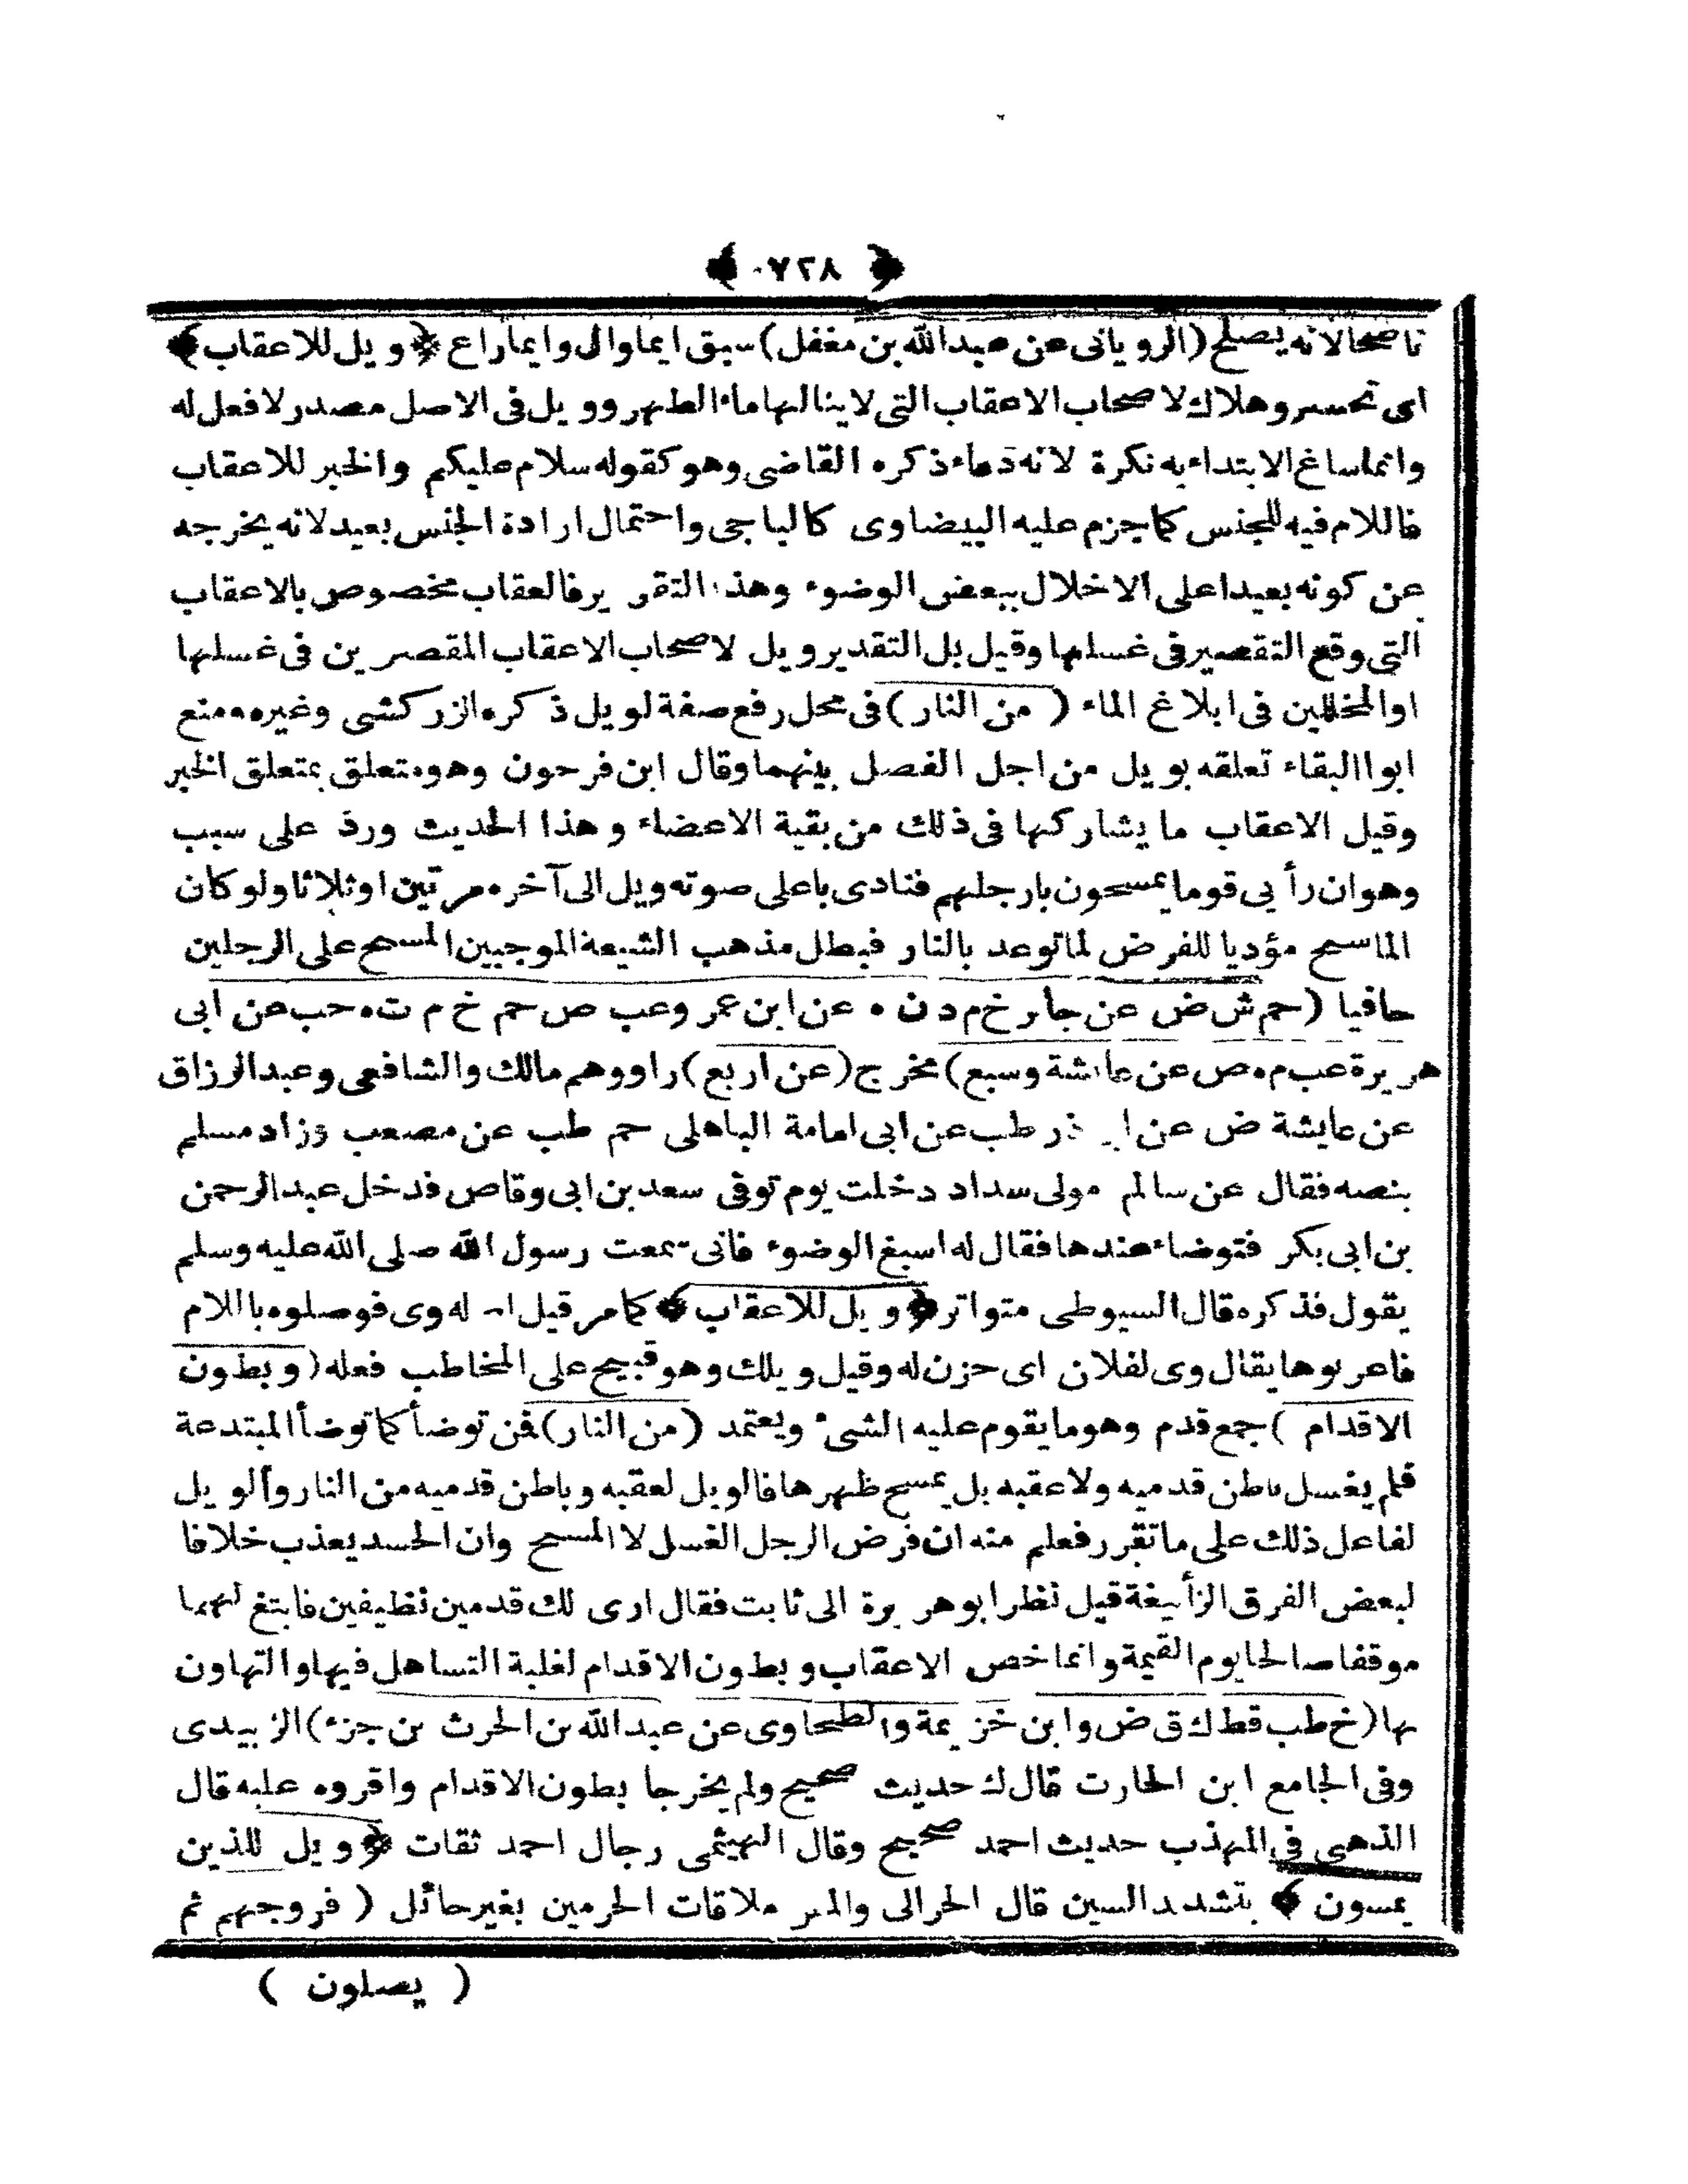 ﴿ ٧٢٨ ﴾
ناصحا لانه يصلح (الرويانى عن عبدالله بن مغفل) سبق ايما وال وايما راع ﴿ ويل للاعقاب ﴾
اى تحسر وهلاك لاصحاب الاعقاب التى لاينالها ماء الطهر وويل فى الاصل مصدر لافعل له
وانما ساغ الابتداء به نكرة لانه دعاء ذكره القاضى وهو كقوله سلام عليكم والخبر للاعقاب
فاللام فيه للجنس كما جزم عليه البيضاوى كالباجى واحتمال ارادة الجنس بعيد لانه يخرجه
عن كونه بعيدا على الاخلال ببعض الوضوء وهذا التقرير فالعقاب مخصوص بالاعقاب
التى وقع التقصير فى غسلها وقيل بل التقدير ويل لاصحاب الاعقاب المقصرين فى غسلها
او المخللين فى ابلاغ الماء (من النار) فى محل رفع صفة لويل ذكره الزركشى وغيره ومنع
ابوا البقاء تعلقه بويل من اجل الفصل بينهما وقال ابن فرحون وهو متعلق بمتعلق الخبر
وقيل الاعقاب ما يشاركها فى ذلك من بقية الاعضاء وهذا الحديث ورد على سبب
وهو ان رأيى قوما يمسحون بارجلهم فنادى باعلى صوته ويل الى آخره مرتين او ثلاثا ولو كان
الماسح مؤديا للفرض لما توعد بالنار فبطل مذهب الشيعة الموجبين المسح على الرجلين
حافيا (حم ش ض عن جابر خ م د ن ه عن ابن عمر وعب ص حم خ م ت ه حب عن ابى
هريرة عب م ه ص عن عايشة وسبع) مخرج (عن اربع) راو وهم مالك والشافعى وعبدالرزاق
عن عايشة ض عن ابى ذر طب عن ابى امامة الباهلى حم طب عن مصعب وزاد مسلم
بنصه فقال عن سالم مولى سداد دخلت يوم توفى سعد بن ابى وقاص فدخل عبدالرحمن
بن ابى بكر فتوضاء عندها فقال له اسبغ الوضوء فانى سمعت رسول الله صلى الله عليه وسلم
يقول فذكره قال السيوطى متواتر ﴿ ويل للاعقاب ﴾ كما مر قيل له وى فوصلوه باللام
فاعربوها يقال وى لفلان اى حزن له وقيل ويلك وهو قبيح على المخاطب فعله (وبطون
الاقدام) جمع قدم وهو ما يقوم عليه الشىء ويعتمد (من النار) فمن توضأ كما توضأ المبتدعة
فلم يغسل باطن قدميه ولا عقبه بل يمسح ظهرها فالويل لعقبه وباطن قدميه من النار والويل
لفاعل ذلك على ما تقرر فعلم منه ان فرض الرجل الغسل لا المسح وان الجسد يعذب خلافا
لبعض الفرق الزأيغة قيل نظر ابو هريرة الى ثابت فقال ارى لك قدمين نظيفين فابتغ لهما
موقفا صالحا يوم القيمة وانما خص الاعقاب وبطون الاقدام لغلبة التساهل فيها والتهاون
بها (خ طب قط ك ق ض وابن خزيمة والطحاوى عن عبدالله بن الحرث بن جزء) الزبيدى
وفى الجامع ابن الحارث قال ك حديث صحيح ولم يخرجا بطون الاقدام واقروه عليه قال
الذهبى فى المهذب حديث احمد صحيح وقال الهيثمى رجال احمد ثقات ﴿ ويل للذين
يمسون ﴾ بتشديد السين قال الحرالى والمس ملاقات الجرمين بغير حائل (فروجهم ثم
( يصلون )